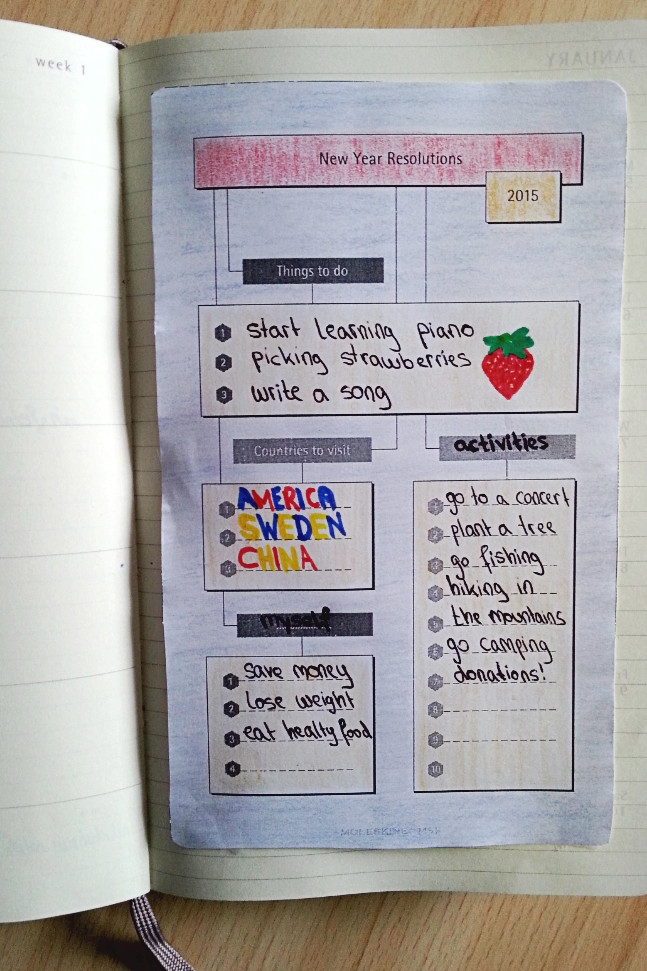 week 1
JANUARY
New Year Resolutions
2015
Things to do
1 start learning piano
2 picking strawberries
3 write a song
Countries to visit
1 AMERICA
2 SWEDEN
3 CHINA
activities
1 go to a concert
2 plant a tree
3 go fishing
4 hiking in
5 the mountains
6 go camping
7 donations!
8
9
10
myself
1 save money
2 lose weight
3 eat healty food
4
MOLESKINE